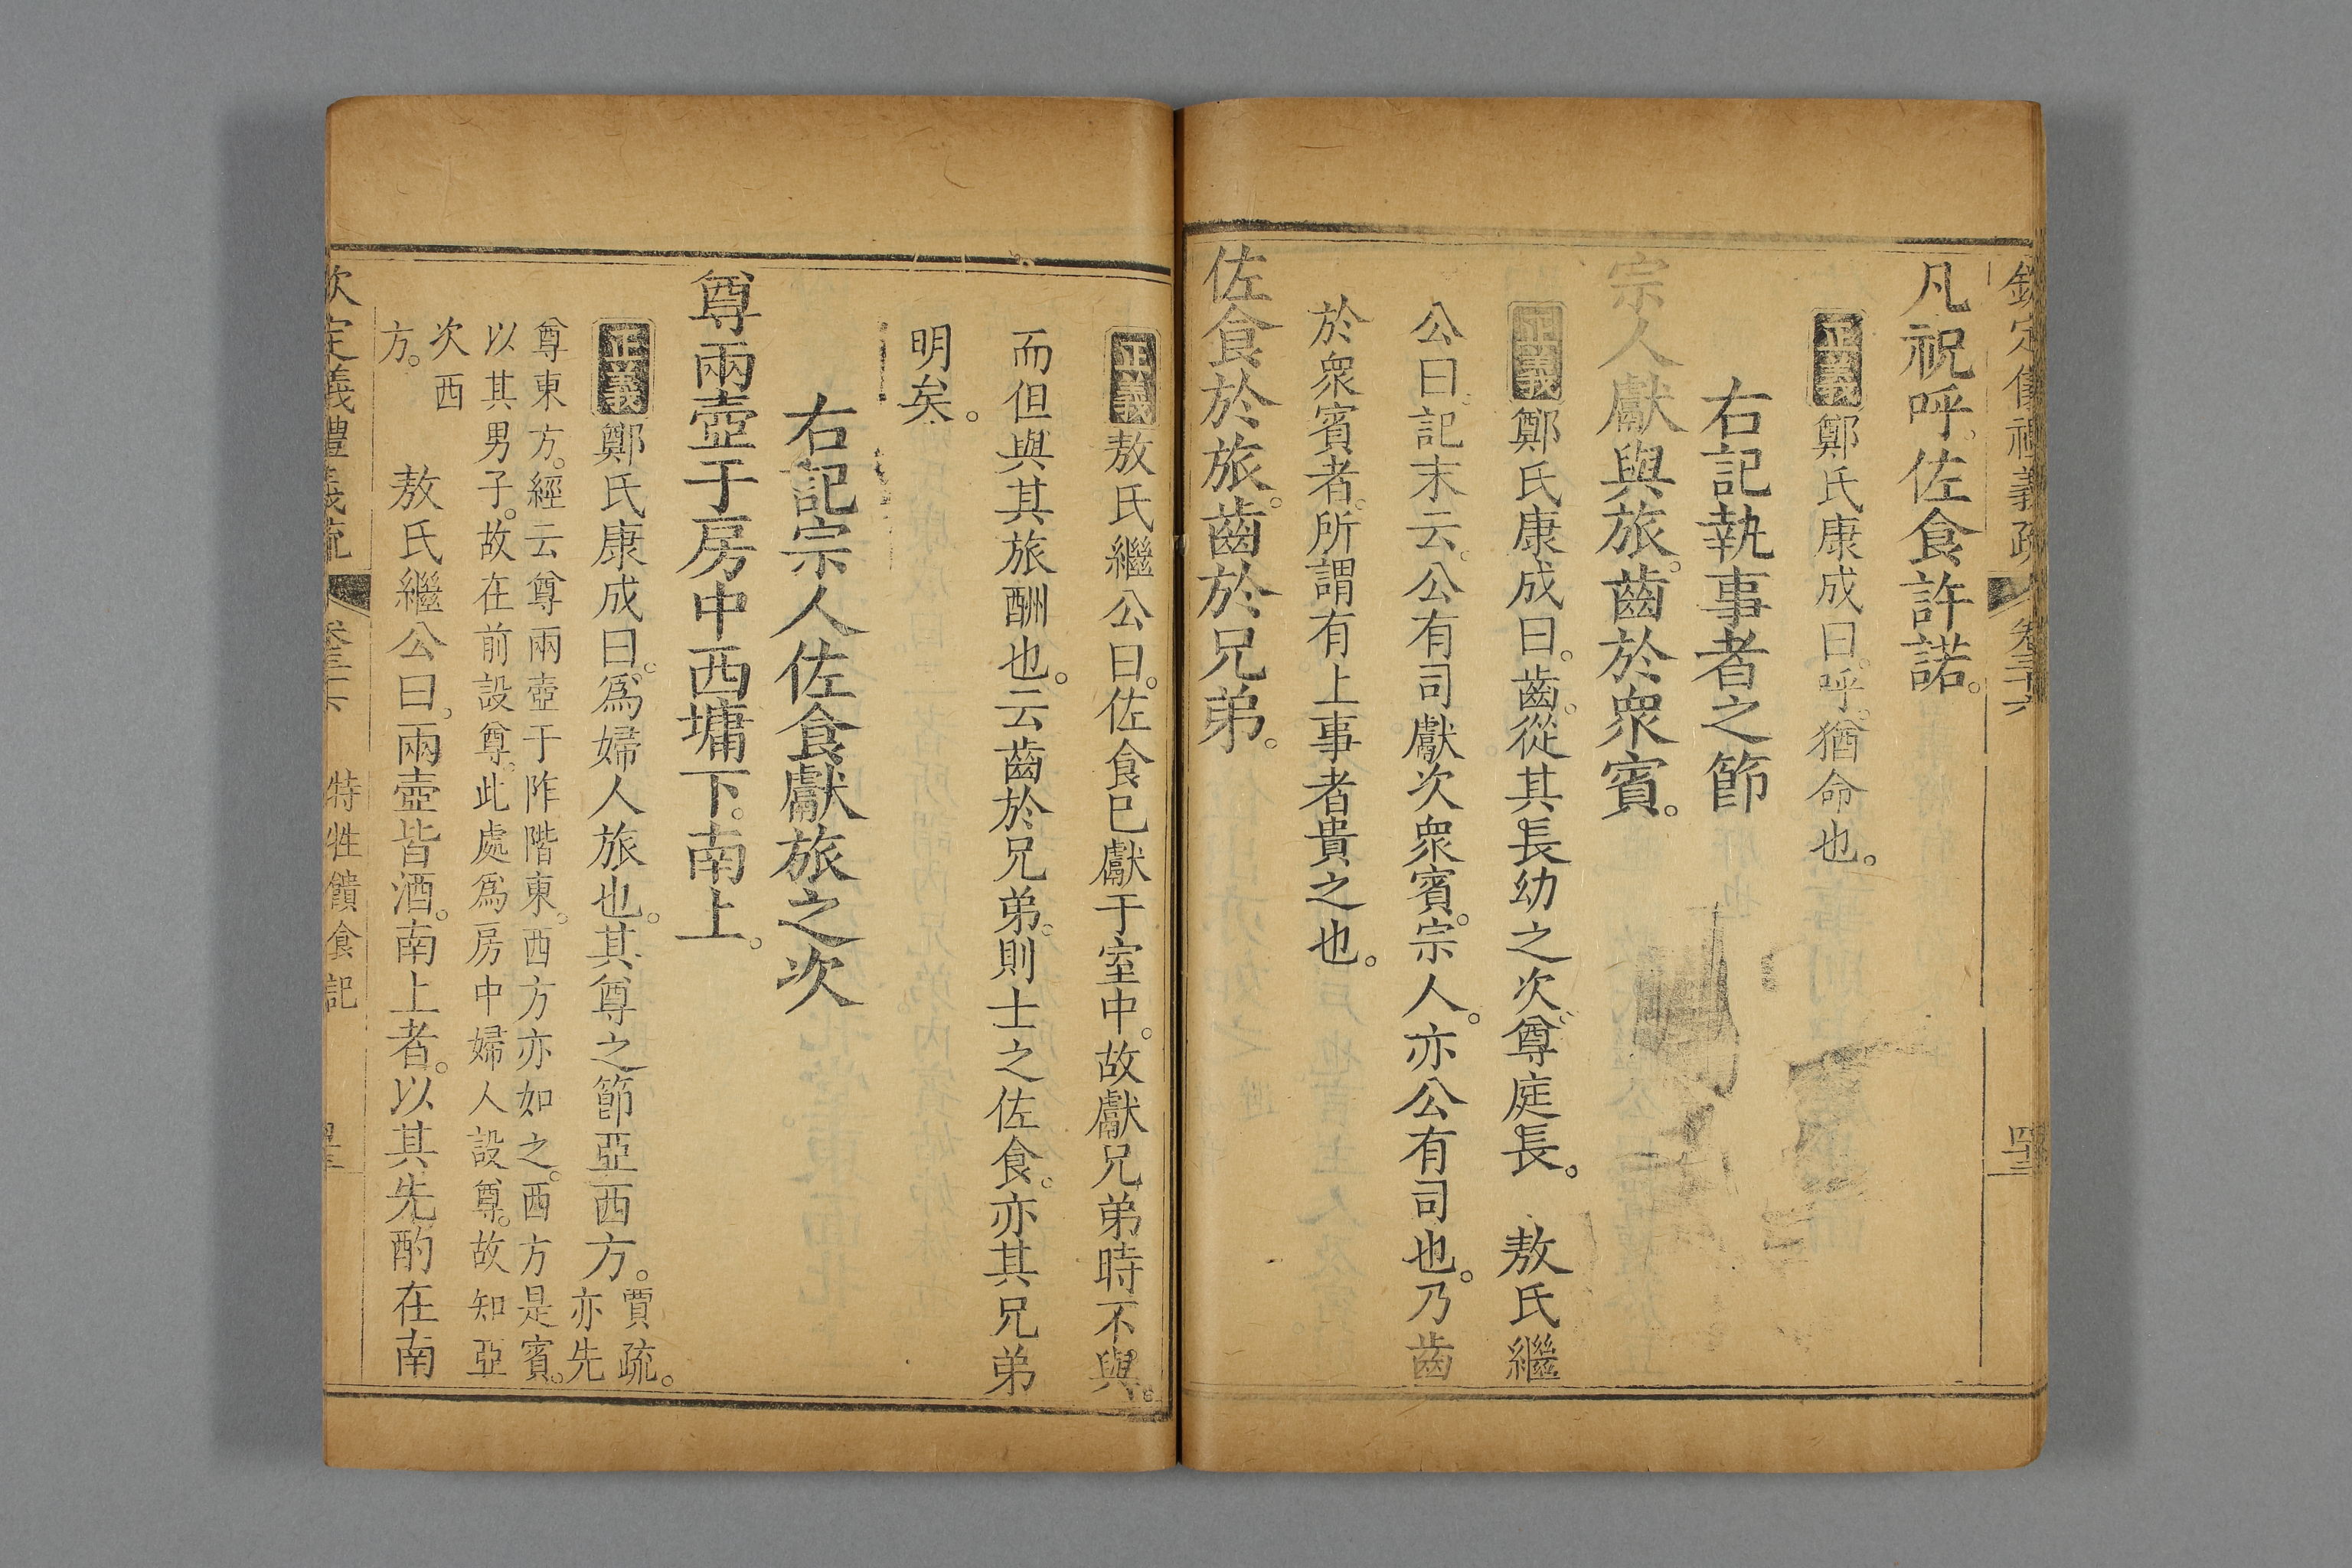 欽定儀禮義疏 卷三十六 四三
凡祝呼。佐食許諾。
正義鄭氏康成曰。呼。猶命也。
右記執事者之節
宗人獻與旅。齒於衆賓。
正義鄭氏康成曰。齒。從其長幼之次。尊庭長。 敖氏繼
公曰。記末云。公有司獻次衆賓。宗人。亦公有司也。乃齒
於衆賓者。所謂有上事者貴之也。
佐食於旅。齒於兄弟。
正義敖氏繼公曰。佐食巳獻于室中。故獻兄弟時不與。
而但與其旅酬也。云齒於兄弟。則士之佐食。亦其兄弟
明矣。
右記宗人佐食獻旅之次
尊兩壺于房中西墉下。南上。
正義鄭氏康成曰。爲婦人旅也。其尊之節亞西方。賈疏。
亦先
尊東方。經云尊兩壺于阼階東。西方亦如之。西方是賓。
以其男子。故在前設尊。此處爲房中婦人設尊。故知亞
次西
方。
敖氏繼公曰。兩壺皆酒。南上者。以其先酌在南
欽定義禮義疏 卷三十六 特牲饋食記